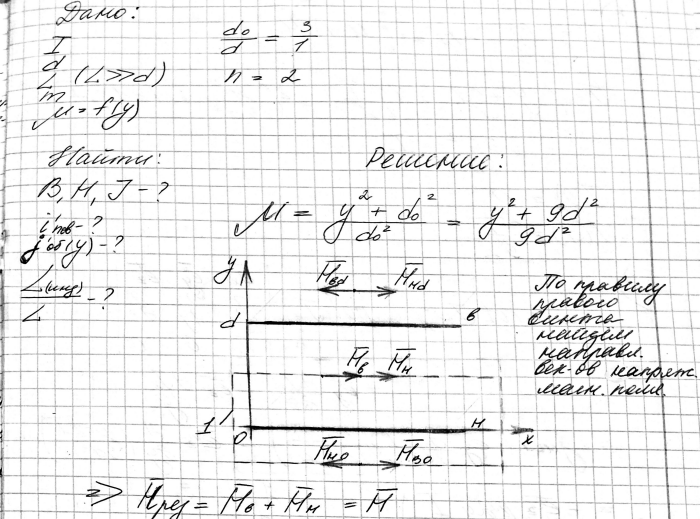 Дано:
I
d
L (L>>d)
m
μ = f(y)
d₀/d = 3/1
n = 2
Найти:
B, H, J - ?
i'пов - ?
j'об(y) - ?
L(инд)/L - ?
Решение:
μ = (y² + d₀²)/d₀² = (y² + 9d²)/9d²
y
H̅вd H̅нd
d в
H̅в H̅н
1'
0 н x
H̅н0 H̅в0
По правилу
правого
винта
найдём
направл.
век-ов напряж.
магн. поля.
=> H̅рез = H̅в + H̅н = H̅